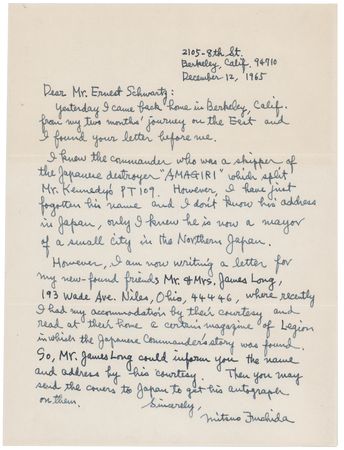 2105-8th St.
Berkeley, Calif. 94710
December 12, 1965
Dear Mr. Ernest Schwartz:
Yesterday I came back home in Berkeley, Calif.
from my two months' journey on the East and
I found your letter before me.
I know the commander who was a skipper of
the Japanese destroyer "AMAGIRI" which split
Mr. Kennedy's PT 109. However, I have just
fogotten his name and I don't know his address
in Japan, only I know he is now a mayor
of a small city in the Northern Japan.
However, I am now writing a letter for
my new-found friends Mr. & Mrs. James Long,
193 Wade Ave. Niles, Ohio, 44446, where recently
I had my accommodation by their courtesy and
read at their home a certain magazine of Legion
in which the Japanese Commander's story was found.
So, Mr. James Long could inform you the name
and address by his courtesy. Then you may
send the covers to Japan to get his autograph
on them. Sincerely,
Mitsuo Fuchida